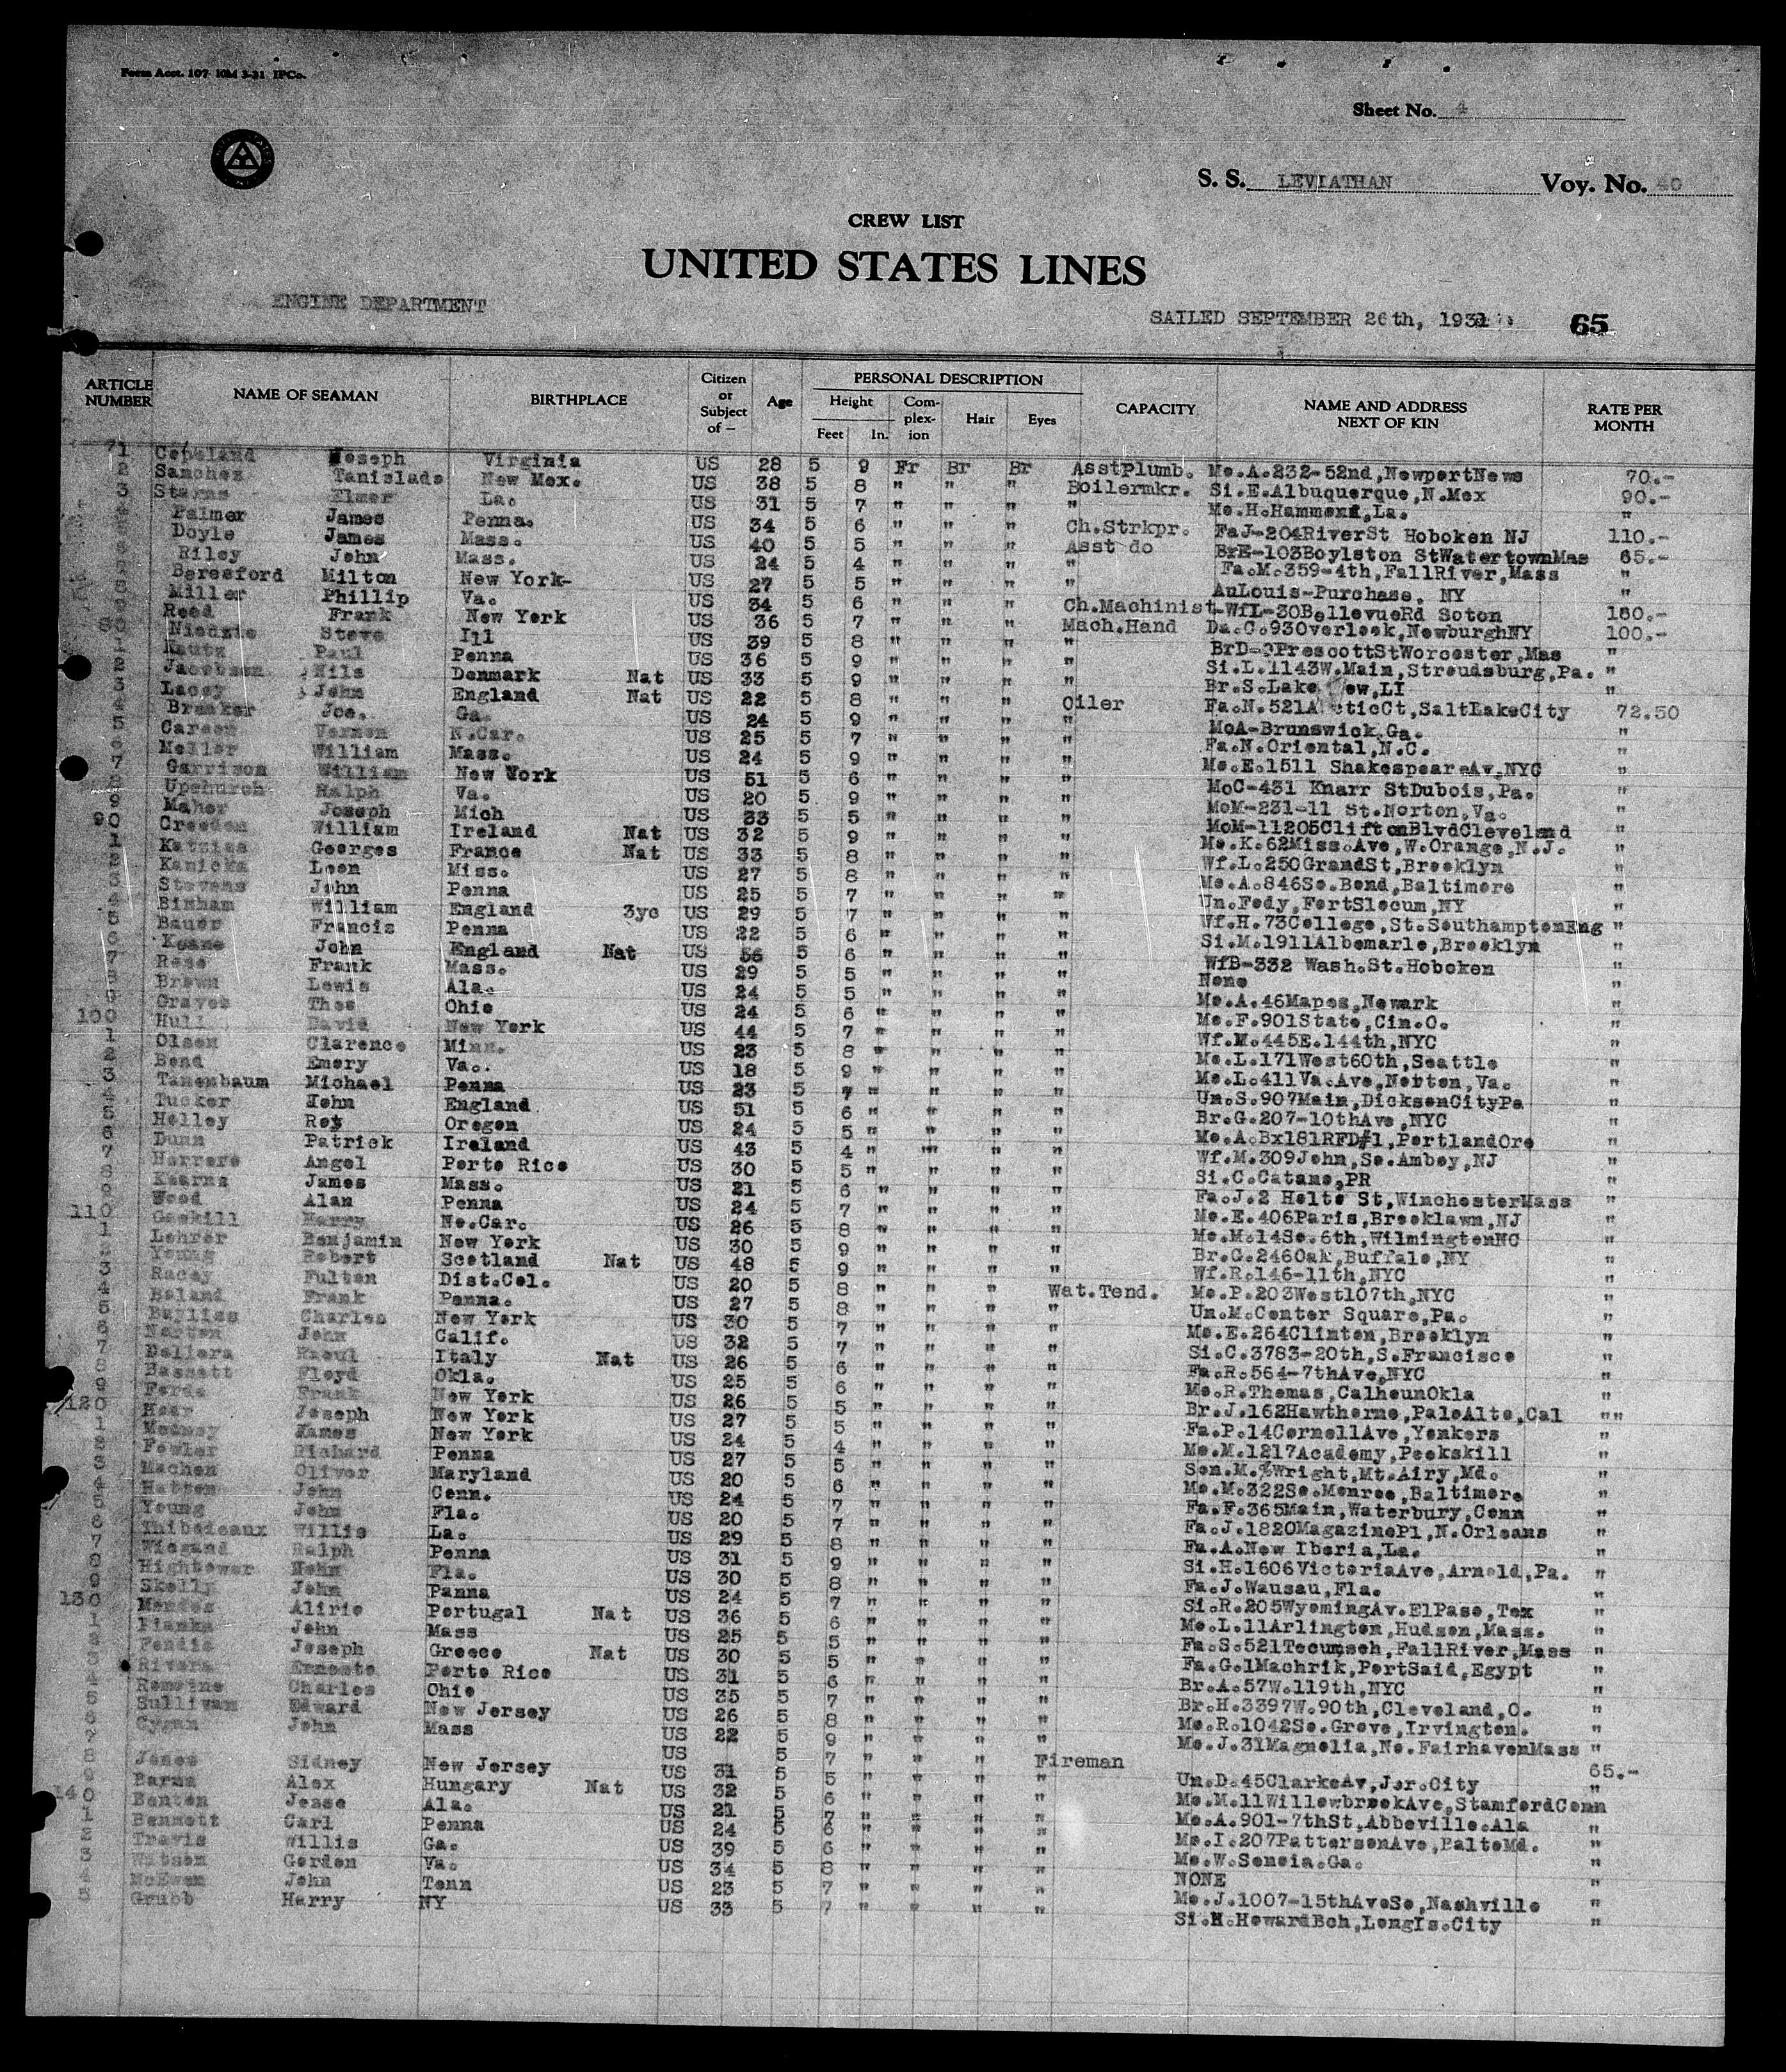 Form Acct. 107 10M 3-31 IPCo.
Sheet No. 4
S. S. LEVIATHAN Voy. No. 40
CREW LIST
UNITED STATES LINES
ENGINE DEPARTMENT
SAILED SEPTEMBER 26th, 1931 65
ARTICLE NUMBER NAME OF SEAMAN BIRTHPLACE Citizen or Subject of — Age PERSONAL DESCRIPTION Height Feet In. Complexion Hair Eyes CAPACITY NAME AND ADDRESS NEXT OF KIN RATE PER MONTH
71 Copeland Joseph Virginia US 28 5 9 Fr Br Br AsstPlumb. Mo.A.232-52nd,NewportNews 70.-
2 Sanchez Tanislado New Mex. US 38 5 8 " " " Boilermkr. Si.E.Albuquerque,N.Mex 90.-
3 Starns Elmer La. US 31 5 7 " " " " Mo.H.Hammond,La. "
4 Palmer James Penna. US 34 5 6 " " " Ch.Strkpr. FaJ-204RiverSt Hoboken NJ 110.-
5 Doyle James Mass. US 40 5 5 " " " Asst do BrE-103Boylston StWatertownMas 65.-
6 Riley John Mass. US 24 5 4 " " " " Fa.M.359-4th,FallRiver,Mass "
7 Beresford Milton New York- US 27 5 5 " " " " AuLouis-Purchase. NY "
8 Miller Phillip Va. US 34 5 6 " " " Ch.Machinist-WfL-30BellevueRd Soton 180.-
9 Reed Frank New York US 36 5 7 " " " Mach.Hand Da.C.93Overlook,NewburghNY 100.-
80 Steve Ill US 39 5 8 " " " " BrD-9PrescottStWorcester,Mas "
1 Kautz Paul Penna US 36 5 9 " " " " Si.L.1143W.Main,Stroudsburg,Pa. "
2 Jacobsen Nils Denmark Nat US 33 5 9 " " " " Br.S.Lake ew,LI "
3 Lacey John England Nat US 22 5 8 " " " Oiler Fa.N.521A cticCt,SaltLakeCity 72.50
4 Breaker Joe. Ga. US 24 5 9 " " " " MoA-Brunswick,Ga. "
5 Careen Vernon N.Car. US 25 5 7 " " " " Fa.N.Oriental,N.C. "
6 Meller William Mass. US 24 5 9 " " " " Mo.E.1511 ShakespeareAv,NYC "
7 Garrison William New York US 51 5 6 " " " " MoC-431 Knarr StDubois,Pa. "
8 Upchurch Ralph Va. US 20 5 9 " " " " MoM-231-11 St.Norton,Va. "
9 Maher Joseph Mich US 33 5 5 " " " " MoM-11205CliftonBlvdCleveland "
90 Creedon William Ireland Nat US 32 5 9 " " " " Mo.K.62Miss.Ave,W.Orange,N.J. "
1 Katzias Georges France Nat US 33 5 8 " " " " Wf.L.250GrandSt,Brooklyn "
2 Kanicka Leon Miss. US 27 5 8 " " " " Mo.A.846So.Bond,Baltimore "
3 Stevens John Penna US 25 5 7 " " " " Un.Fody,FortSlocum,NY "
4 Binham William England 3yc US 29 5 7 " " " " Wf.H.73College,St.SouthamptonEng "
5 Bauer Francis Penna US 22 5 6 " " " " Si.M.1911Albemarle,Brooklyn "
6 Keane John England Nat US 56 5 6 " " " " WfB-332 Wash.St.Hoboken "
7 Rose Frank Mass. US 29 5 5 " " " " None "
8 Brown Lewis Ala. US 24 5 5 " " " " Mo.A.46Mapes,Newark "
9 Graves Thos Ohio US 24 5 6 " " " " Mo.F.901State,Cin.O. "
100 Hull David New York US 44 5 7 " " " " Wf.M.445E.144th,NYC "
1 Olsen Clarence Minn. US 23 5 8 " " " " Mo.L.171West60th,Seattle "
2 Bond Emory Va. US 18 5 9 " " " " Mo.L.411Va.Ave,Norton,Va. "
3 Tanenbaum Michael Penna US 23 5 7 " " " " Un.S.907Main,DicksonCityPa "
4 Tucker John England US 51 5 6 " " " " Br.G.207-10thAve,NYC "
5 Holley Roy Oregon US 24 5 5 " " " " Mo.A.Bx181RFD#1,PortlandOre "
6 Dunn Patrick Ireland US 43 5 4 " " " " Wf.M.309John,So.Amboy,NJ "
7 Herrera Angel Porto Rico US 30 5 5 " " " " Si.C.Catano,PR "
8 Kearns James Mass. US 21 5 6 " " " " Fa.J.2 Holts St,WinchesterMass "
9 Wood Alan Penna US 24 5 7 " " " " Mo.E.406Paris,Brooklawn,NJ "
110 Gaskill Harry No.Car. US 26 5 8 " " " " Mo.M.14So.6th,WilmingtonNC "
1 Lehrer Benjamin New York US 30 5 9 " " " " Br.G.246Oak,Buffalo,NY "
2 Young Robert Scotland Nat US 48 5 9 " " " " Wf.R.146-11th,NYC "
3 Racey Fulton Dist.Col. US 20 5 8 " " " Wat.Tend. Mo.P.203West107th,NYC "
4 Boland Frank Penna. US 27 5 8 " " " " Un.M.Center Square,Pa. "
5 Bayliss Charles New York US 30 5 7 " " " " Mo.E.264Clinton,Brooklyn "
6 Norton John Calif. US 32 5 7 " " " " Si.C.3783-20th,S.Francisco "
7 Deliera Raoul Italy Nat US 26 5 6 " " " " Fa.R.564-7thAve,NYC "
8 Bassett Floyd Okla. US 25 5 6 " " " " Mo.R.Thomas,CalhounOkla "
9 Forde Frank New York US 26 5 5 " " " " Br.J.162Hawthorne,PaloAlto,Cal ""
120 Hoar Joseph New York US 27 5 5 " " " " Fa.P.14CornellAve,Yonkers "
1 James New York US 24 5 4 " " " " Mo.M.1217Academy,Peekskill "
2 Fowler Richard Penna US 27 5 5 " " " " Son.M.%Wright,Mt.Airy,Md. "
3 Machen Oliver Maryland US 20 5 6 " " " " Mo.M.322So.Monroe,Baltimore "
4 John Conn. US 24 5 7 " " " " Fa.F.365Main,Waterbury,Conn "
5 Young John Fla. US 20 5 7 " " " " Fa.J.1820MagazinePl,N.Orleans "
6 Thibodeaux Willis La. US 29 5 8 " " " " Fa.A.New Iberia,La. "
7 Wiegand Ralph Penna US 31 5 9 " " " " Si.H.1606VictoriaAve,Arnold,Pa. "
8 Hightower John Fla. US 30 5 8 " " " " Fa.J.Wausau,Fla. "
9 Skelly John Panna US 24 5 7 " " " " Si.R.205WyomingAv.ElPaso,Tex "
130 Mendes Alirio Portugal Nat US 36 5 6 " " " " Mo.L.11Arlington,Hudson,Mass. "
1 Pianka John Mass US 25 5 5 " " " " Fa.S.521Tecumseh,FallRiver,Mass "
2 Fendis Joseph Greece Nat US 30 5 5 " " " " Fa.G.1Machrik,PortSaid,Egypt "
3 Rivera Ernesto Porto Rico US 31 5 6 " " " " Br.A.57W.119th,NYC "
4 Romaine Charles Ohio US 35 5 7 " " " " Br.H.3397W.90th,Cleveland,O. "
5 Sullivan Edward New Jersey US 26 5 8 " " " " Mo.R.1042So.Grove,Irvington. "
6 Cygan John Mass US 22 5 9 " " " " Mo.J.31Magnolia,No.FairhavenMass "
7 US 5 7 " " " Fireman 65.-
8 Jones Sidney New Jersey US 31 5 5 " " " Un.D.45ClarkeAv,Jer.City "
9 Barna Alex Hungary Nat US 32 5 6 " " " " Mo.M.11WillowbrookAve,StamfordConn "
140 Benton Jesse Ala. US 21 5 7 " " " " Mo.A.901-7thSt.Abbeville.Ala "
1 Bennett Carl Penna US 24 5 6 " " " " Mo.I.207PattersonAve,BaltoMd. "
2 Travis Willis Ga. US 39 5 6 " " " " Mo.W.Soncia.Ga. "
3 Watson Gordon Va. US 34 5 8 " " " " NONE "
4 McEwen John Tenn US 23 5 7 " " " " Mo.J.1007-15thAveSo,Nashville "
5 Grubb Harry NY US 33 5 7 " " " " Si.H.HowardBch,LongIs.City "